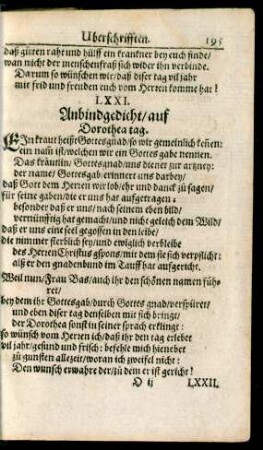 Uberschrifften. 195
daß guten raht und hülff ein krankner bey euch finde/
wan nicht der menschenfraß sich wider ihn verbinde.
Darum so wünschen wir/ daß diser tag vil jahr
mit frid und freuden euch vom Herren komme har!
LXXI.
Anbindgedicht/ auf
Dorothea tag.
EIn kraut heißt Gottesgnad/ so wir gemeinlich keñen:
ein nam̃ ist/ welchen wir ein Gottes gabe nennen.
Das kräutlin/ Gottesgnad/ uns dienet zur artzney:
der name/ Gottesgab erinnert uns darbey/
daß Gott dem Herren wir lob/ ehr und danck zu sagen/
für seine gaben/ die er uns har aufgetragen:
besonder daß er uns/ nach seinem eben bild/
vernünfftig hat gemacht/ und nicht geleich dem Wild/
daß er uns eine seel gegossen in den leibe/
die nimmer sterblich sey/ und ewiglich verbleibe
des Herren Christus gspons/ mit dem sie sich verpflicht:
alß er den gnadenbund im Tauff hat aufgericht.
Weil nun/ Frau Bas/ auch ihr den schönen namen füh-
ret/
bey dem ihr Gottesgab/ durch Gottes gnad/ verspüret/
und eben diser tag denselben mit sich bringt/
der Dorothea sonst in seiner sprach erklingt:
so wünsch vom Herren ich/ daß ihr den tag erlebet
vil jahr/ gesund und frisch: befehle mich hienebet
zu gunsten allezeit/ woran ich zweifel nicht:
Den wunsch erwahre der/ zu dem er ist gericht!
O ij LXXII.